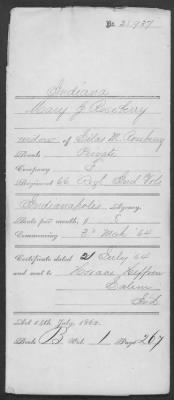 No. 21,937
Indiana
Mary J Roseberry
widow of Silas M. Roseberry
Rank Private
Company
Regiment 66 Regt Ind Vols
Indianapolis Agency.
Rate per month, $ 8
Commencing 3d Mch '64
Certificate dated 21 July '64
and sent to Horace Heffren
Salem
Ind.
Act 14th July, 1862.
Book B Vol. 1 Page 267